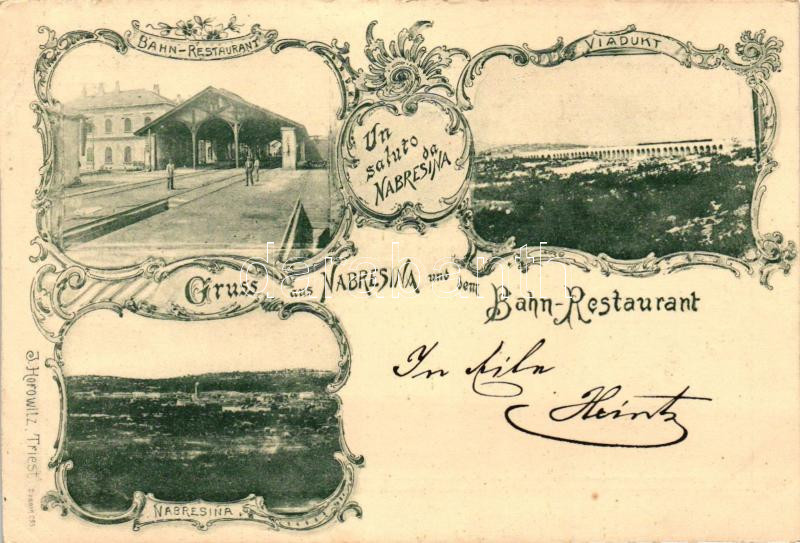 BAHN-RESTAURANT
VIADUKT
Un
saluto
da
NABRESINA
Gruss aus NABRESINA und dem
Bahn-Restaurant
In Eile
Heintz
NABRESINA
J. Horowitz, Triest.
darabanth